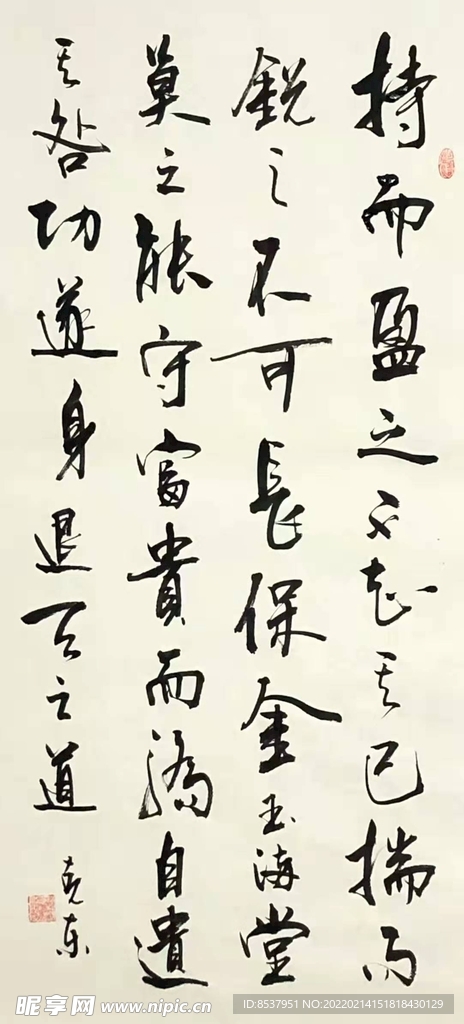 持而盈之不如其已揣而
銳之不可長保金玉海堂
莫之能守富貴而驕自遺
其咎功遂身退天之道
克东
昵享网 www.nipic.cn
ID:8537951 NO:20220214151818430129